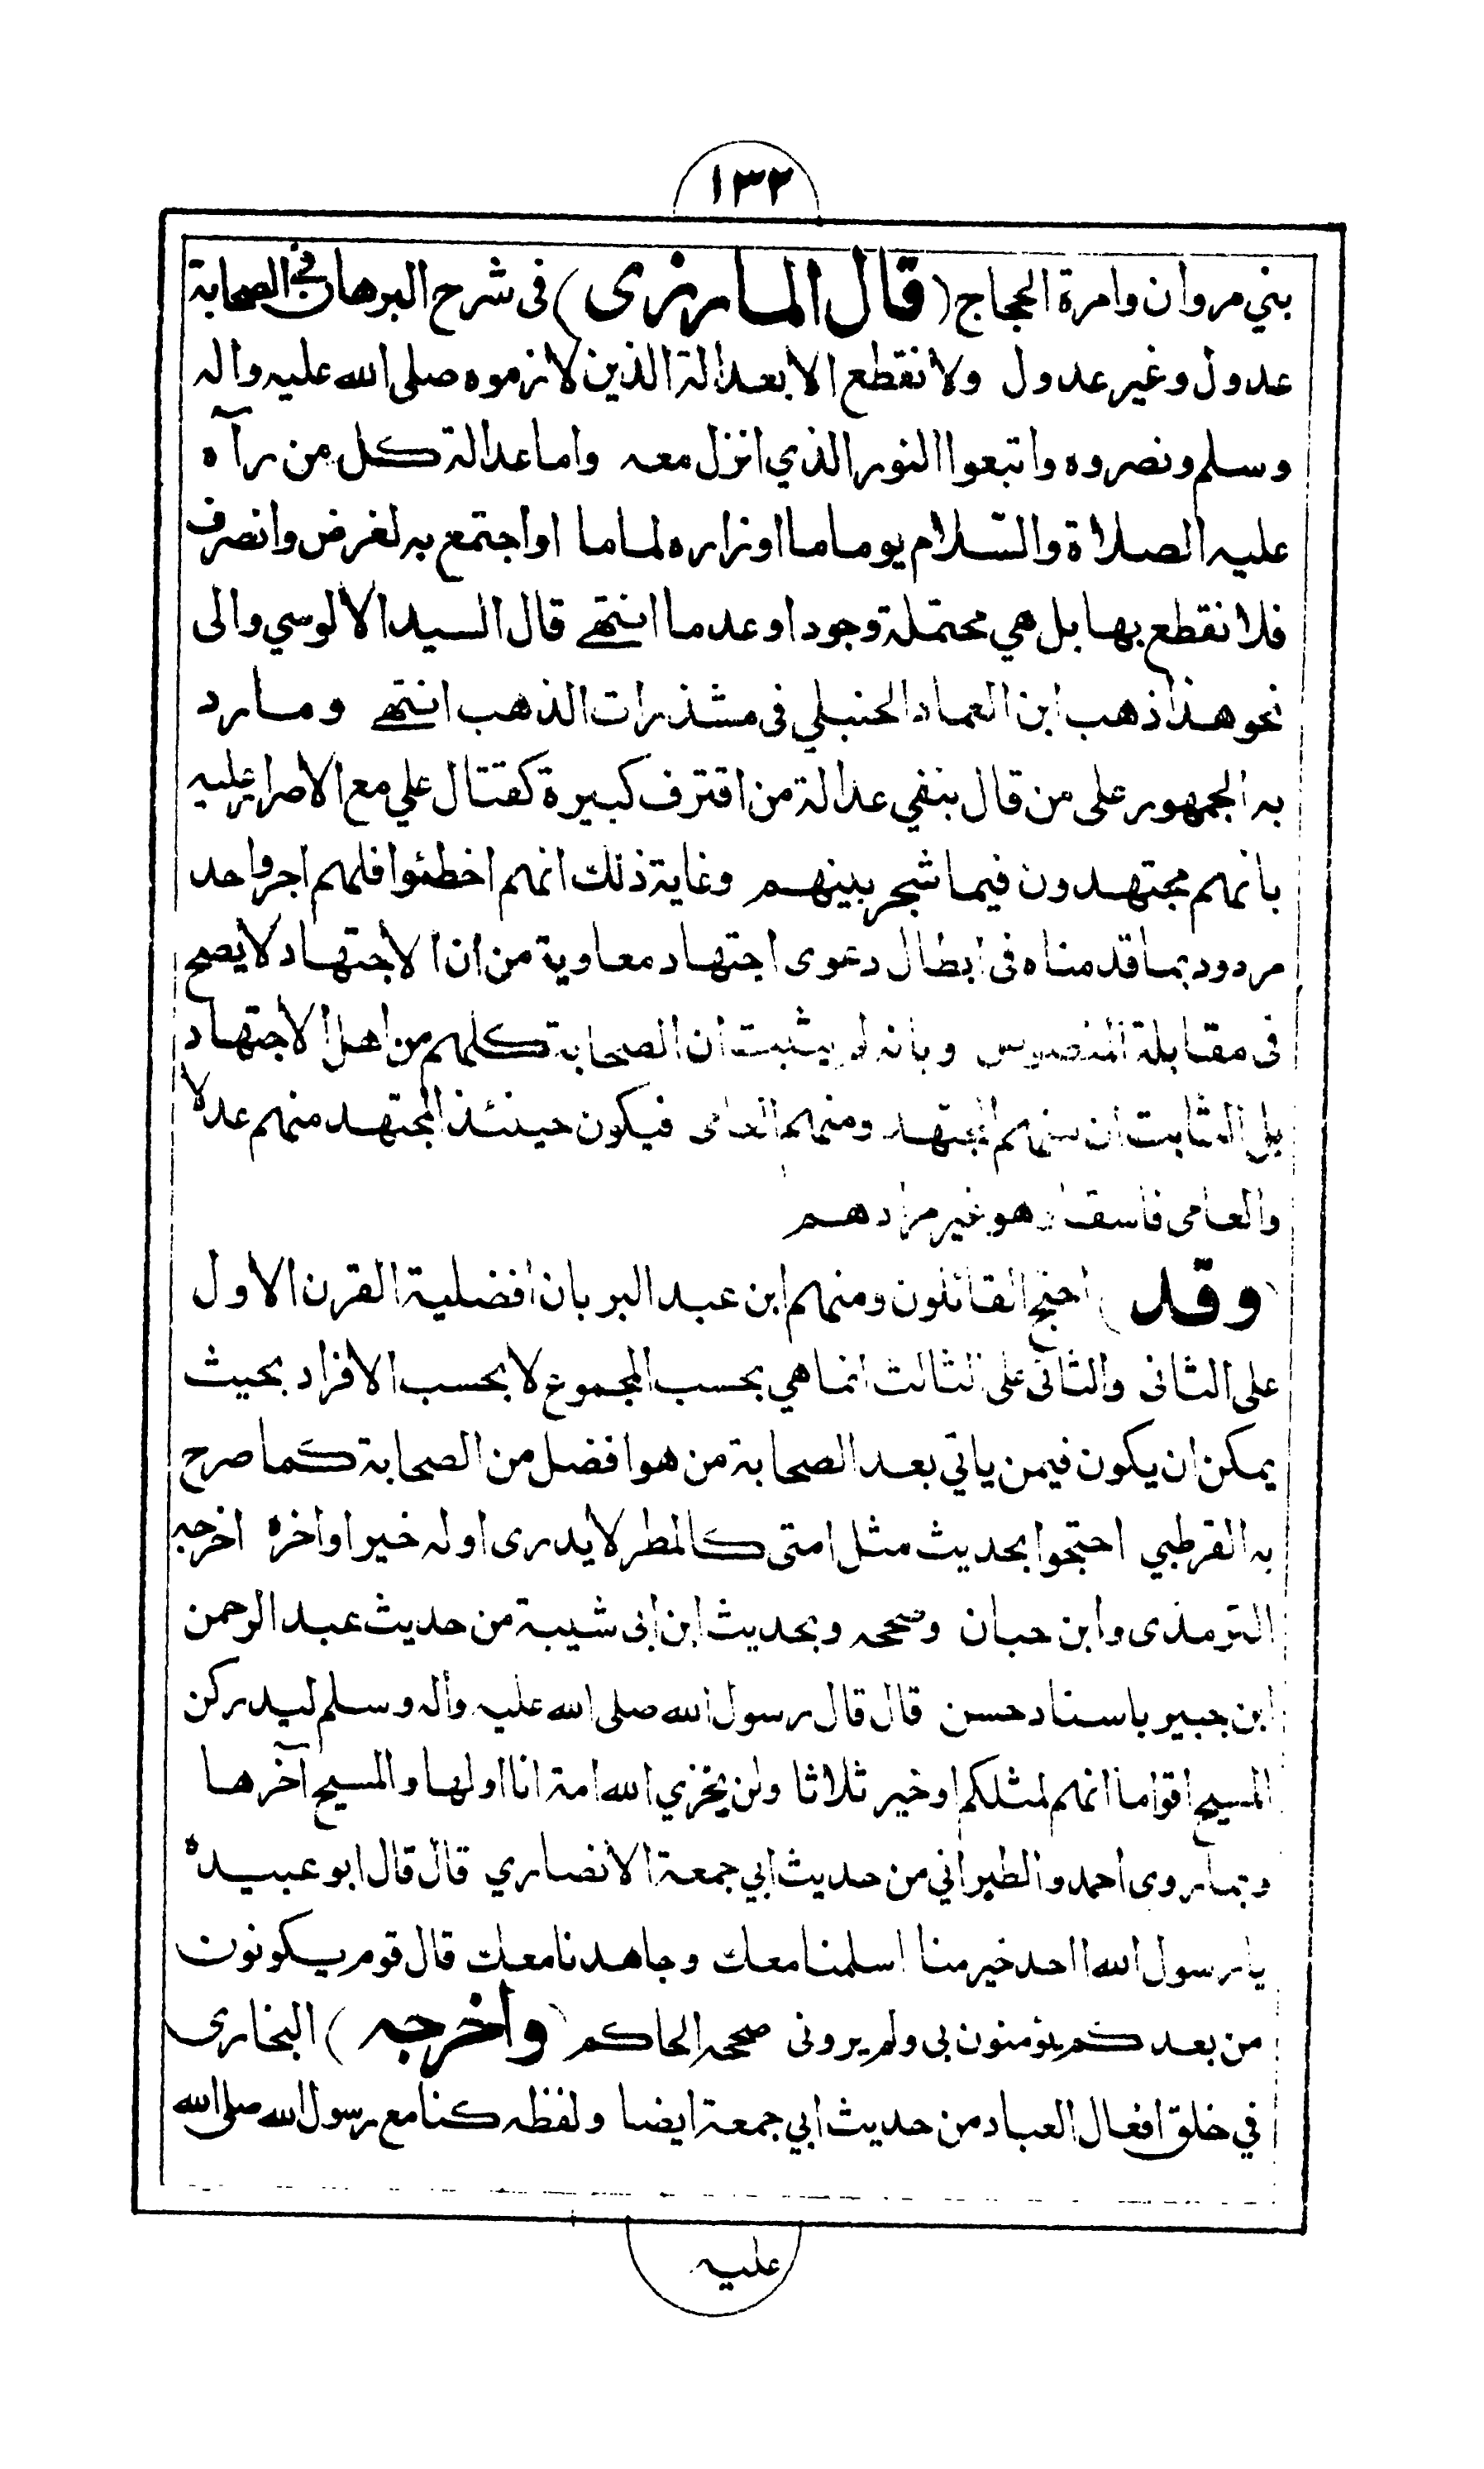 ١٣٢
بني مروان وامرة الحجاج (قال المازرى) فى شرح البرهان فى الصحابة
عدول وغير عدول ولا نقطع الا بعدالة الذين لازموه صلى الله عليه واله
وسلم ونصروه واتبعوا النور الذي انزل معه واما عدالة كل من رآه
عليه الصلاة والسّلام يوما ما او زاره لماما او اجتمع به لغرض وانصرف
فلا نقطع بها بل هي محتملة وجودا وعدما انتهے قال السيد الالوسي والى
نحو هذا ذهب ابن العماد الحنبلي فى مشذرات الذهب انتهے وما رد
به الجمهور على من قال بنفي عدالة من اقترف كبيرة كقتال علي مع الاصرار عليه
بانهم مجتهدون فيما شجر بينهم وغاية ذلك انهم اخطئوا فلهم اجر واحد
مردود بما قدمناه فى ابطال دعوى اجتهاد معاوية من ان الاجتهاد لا يصح
فى مقابلة النصوص وبانه لم يثبت ان الصحابة كلهم من اهل الاجتهاد
بل الثابت ان منهم المجتهد ومنهم العامى فيكون حينئذ المجتهد منهم عدلا
والعامى فاسقا وهو غير مرادهم
(وقد) احتج القائلون ومنهم ابن عبد البر بان افضلية القرن الاول
على الثانى والثانى على الثالث انما هي بحسب المجموع لا بحسب الافراد بحيث
يمكن ان يكون فيمن ياتي بعد الصحابة من هو افضل من الصحابة كما صرح
به القرطبي احتجوا بحديث مثل امتى كالمطر لا يدرى اوله خير او اخره اخرجه
الترمذى وابن حبان وصححه وبحديث ابن ابى شيبة من حديث عبد الرحمن
ابن جبير باسناد حسن قال قال رسول الله صلى الله عليه وأله وسلم ليدركن
المسيح اقواما انهم لمثلكم او خير ثلاثا ولن يخزي الله امة انا اولها والمسيح آخرها
وبما روى احمد والطبراني من حديث ابي جمعة الانصاري قال قال ابو عبيدة
يا رسول الله ااحد خير منا اسلمنا معك وجاهدنا معك قال قوم يكونون
من بعدكم يؤمنون بى ولم يرونى صححه الحاكم (وأخرجه) البخارى
في خلق افعال العباد من حديث ابي جمعة ايضا ولفظه كنا مع رسول الله صلى الله
عليه